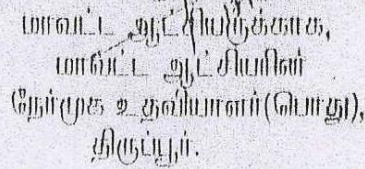 மாவட்ட ஆட்சியருக்காக,
மாவட்ட ஆட்சியரின்
நேர்முக உதவியாளர்(பொது),
திருப்பூர்.